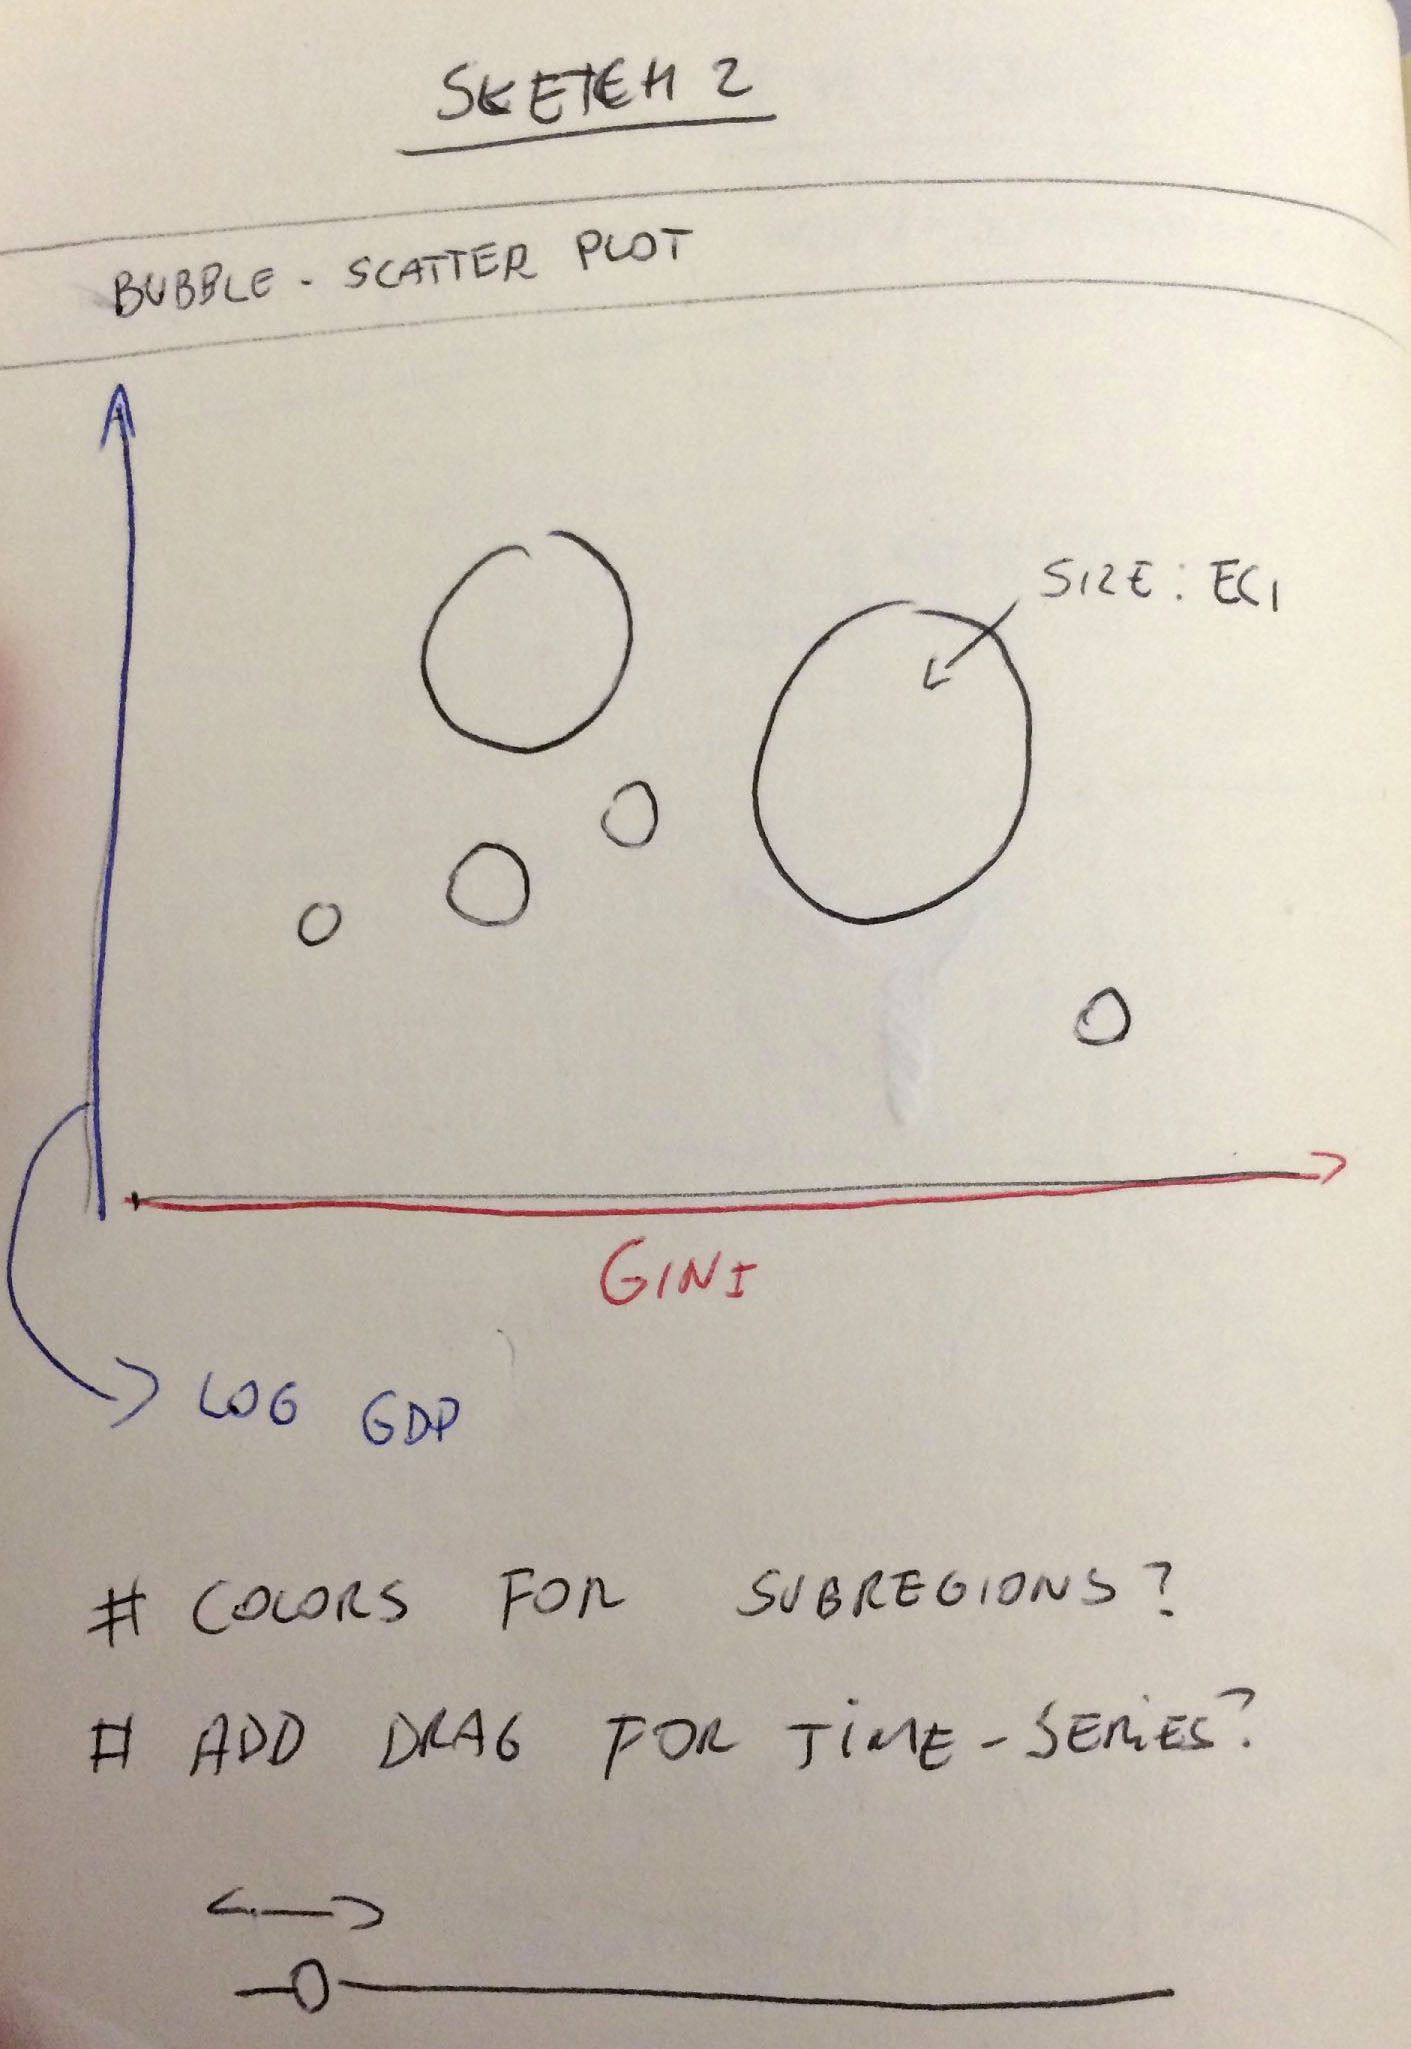 SKETCH 2
BUBBLE - SCATTER PLOT
SIZE: ECI
GINI
LOG GDP
# COLORS FOR SUBREGIONS?
# ADD DRAG FOR TIME-SERIES?